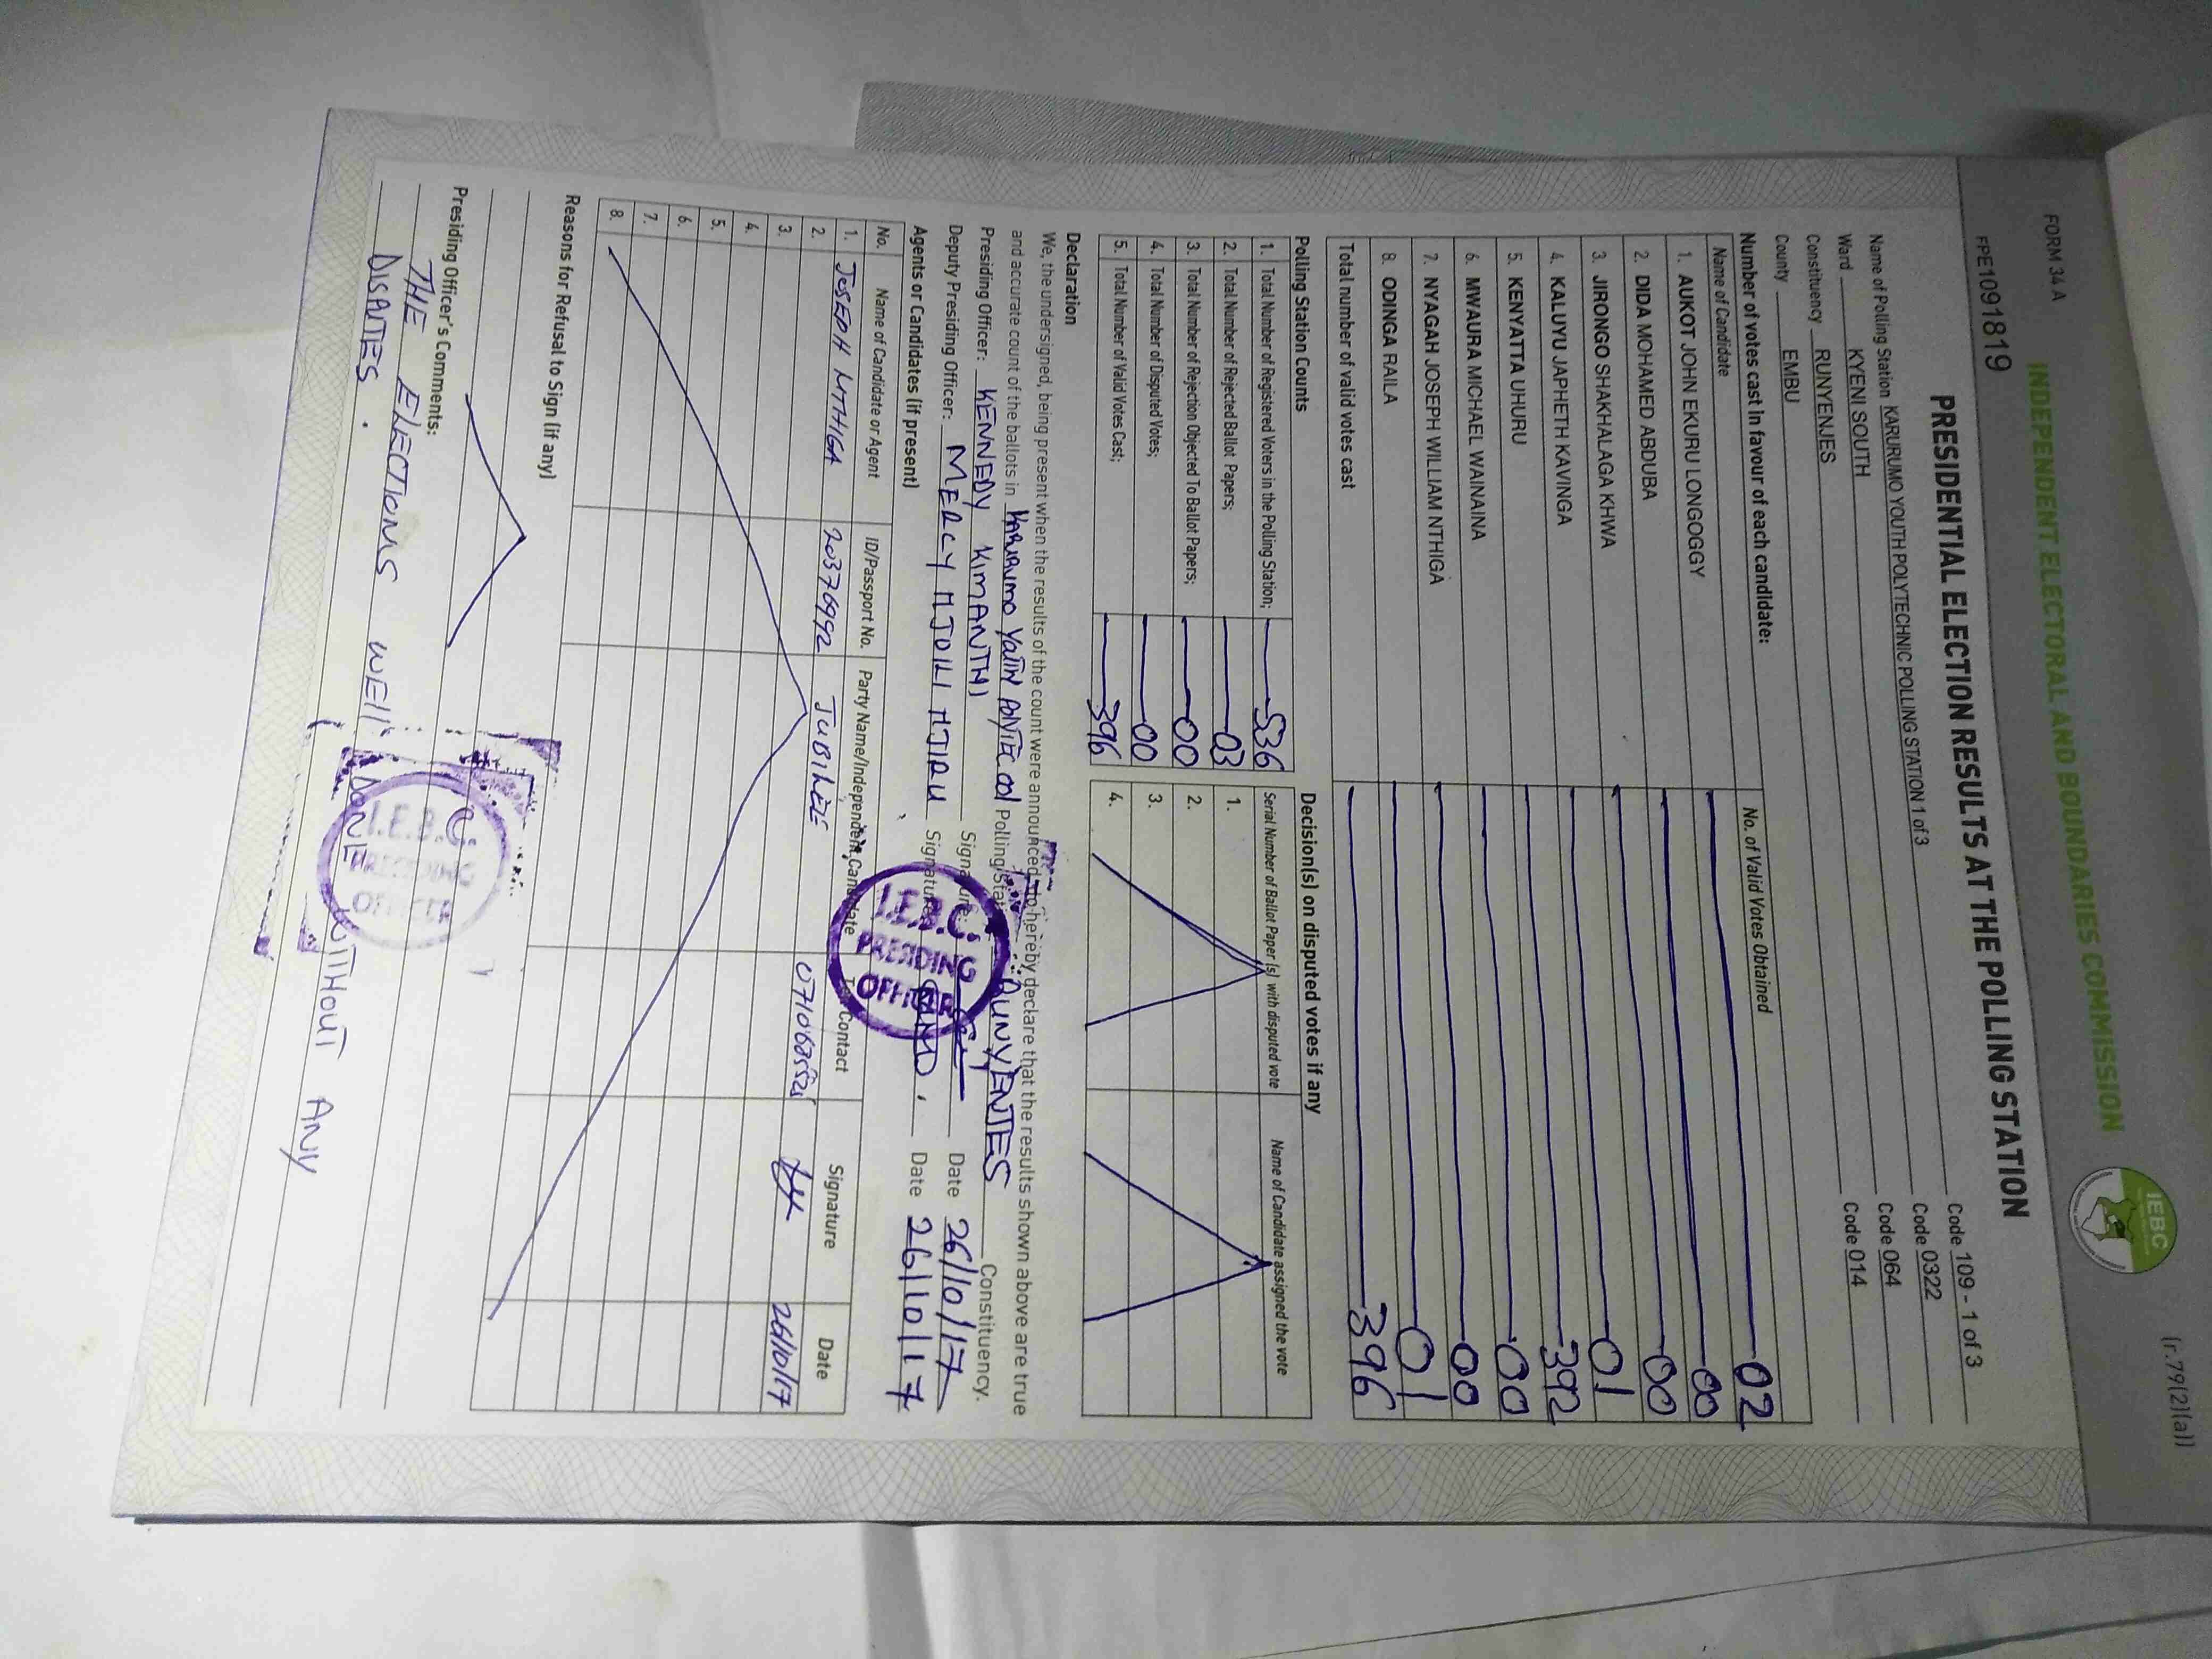 (r.79(2)(a))
FORM 34 A
INDEPENDENT ELECTORAL AND BOUNDARIES COMMISSION
IEBC
FPE1091819
PRESIDENTIAL ELECTION RESULTS AT THE POLLING STATION
Name of Polling Station KARURUMO YOUTH POLYTECHNIC POLLING STATION 1 of 3 Code 109 - 1 of 3
Ward KYENI SOUTH Code 0322
Constituency RUNYENJES Code 064
County EMBU Code 014
Number of votes cast in favour of each candidate:
Name of Candidate No. of Valid Votes Obtained
1. AUKOT JOHN EKURU LONGOGGY 02
2. DIDA MOHAMED ABDUBA 00
3. JIRONGO SHAKHALAGA KHWA 00
4. KALUYU JAPHETH KAVINGA 01
5. KENYATTA UHURU 392
6. MWAURA MICHAEL WAINAINA 00
7. NYAGAH JOSEPH WILLIAM NTHIGA 00
8. ODINGA RAILA 01
Total number of valid votes cast 396
Polling Station Counts
1. Total Number of Registered Voters in the Polling Station; 536
2. Total Number of Rejected Ballot Papers; 03
3. Total Number of Rejection Objected To Ballot Papers; 00
4. Total Number of Disputed Votes; 00
5. Total Number of Valid Votes Cast; 396
Decision(s) on disputed votes if any
Serial Number of Ballot Paper (s) with disputed vote Name of Candidate assigned the vote
1.
2.
3.
4.
Declaration
We, the undersigned, being present when the results of the count were announced, do hereby declare that the results shown above are true
and accurate count of the ballots in KARURUMO YOUTH POLYTEC 001 Polling Station RUNYENJES Constituency.
Presiding Officer: KENNEDY KIMANTHI Signature: Date 26/10/17
Deputy Presiding Officer: MERCY NJOKI NJIRU Signature: Date 26/10/17
I.E.B.C.
PRESIDING
OFFICER
Agents or Candidates (if present)
No. Name of Candidate or Agent ID/Passport No. Party Name/Independent Candidate Tel. Contact Signature Date
1. JOSEPH NTHIGA 20376992 JUBILEE 26/10/17
2.
3.
4.
5.
6.
7.
8.
Reasons for Refusal to Sign (if any)
Presiding Officer's Comments:
THE ELECTIONS WELL DONE WITHOUT ANY
DISPUTES.
I.E.B.C.
PRESIDING
OFFICER